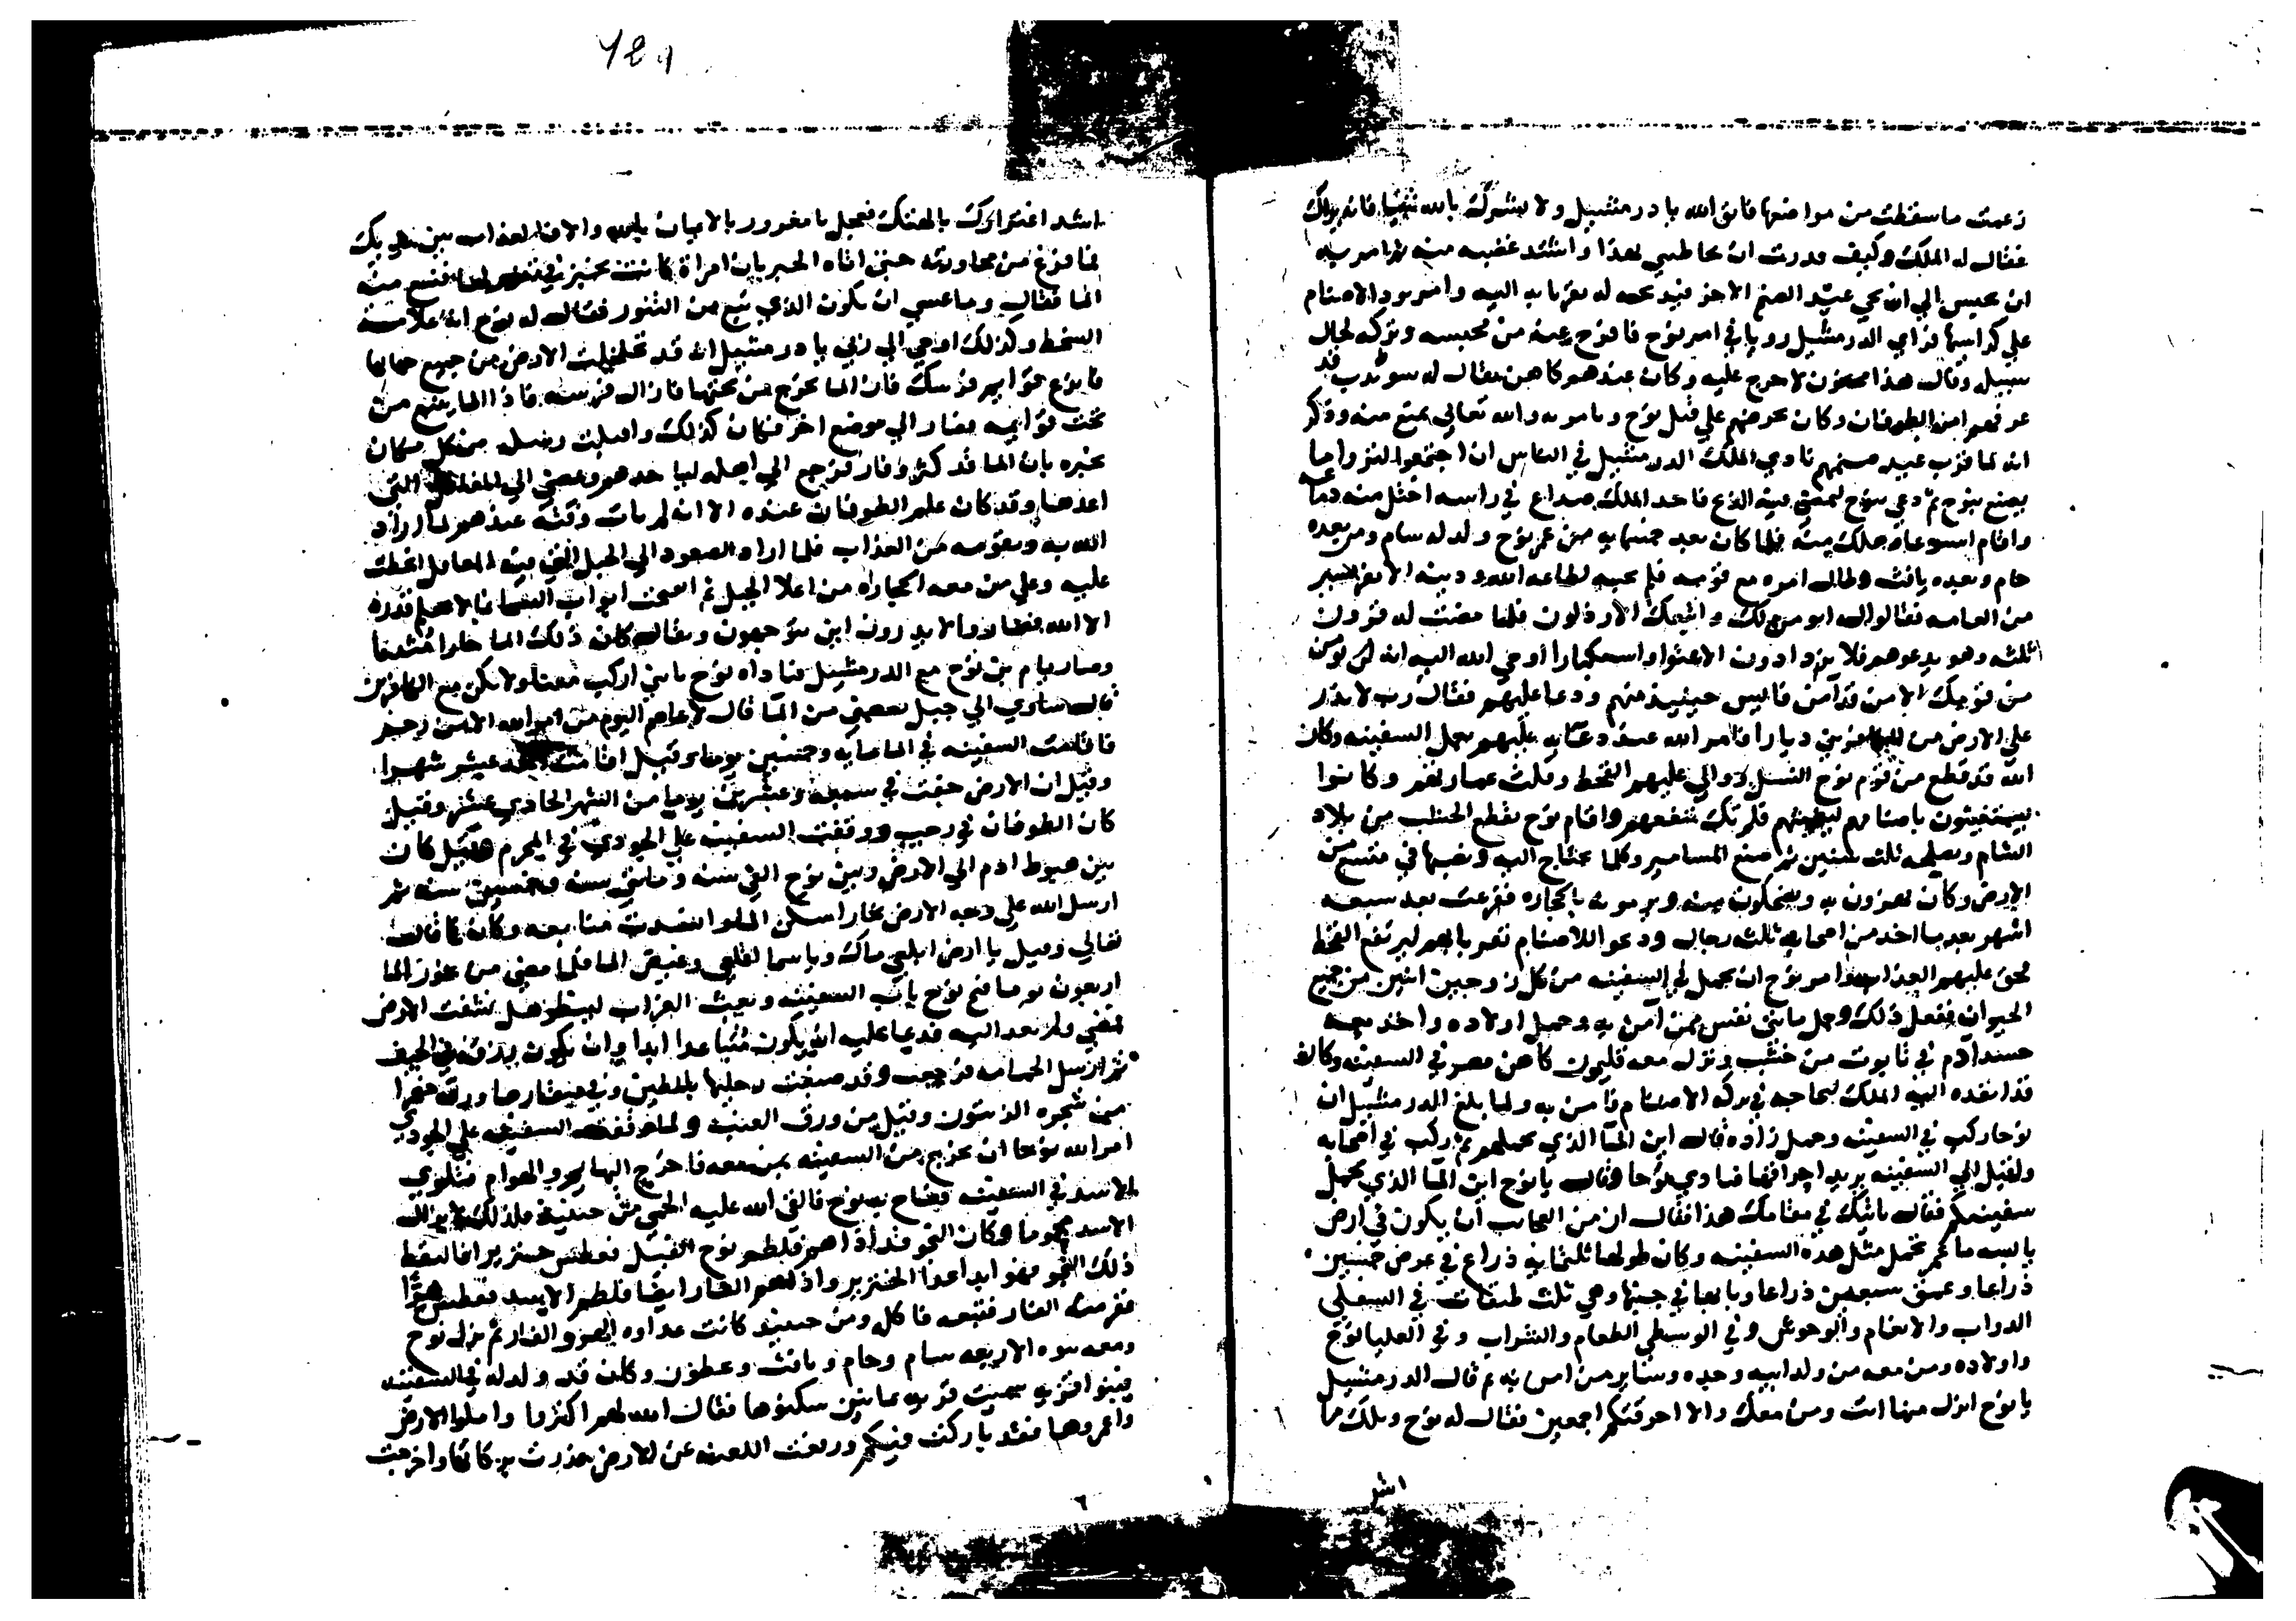 زعمت ما سقطت من مواضعها فاتق الله يا درمشيل ولا تشرك بالله شيئا فانه يهلك
فقال له الملك وكيف قدرت ان تخاطبني بهذا واشتد غضبه منه ثم امر به
ان يحبس الي ان يجي عيد الصنم الاخر فيذبحه له تقربا به اليه وامر برد الاصنام
علي كراسيها فراي الدرمشيل رويا في امر نوح فاخرج عنه من محبسه وتركه لحال
سبيله وقال هذا مجنون لا حرج عليه وكان عندهم كاهن يقال له قد
عرفهم امر الطوفان وكان يحرضهم علي قتل نوح ويامر به والله تعالي يمنع منه وذكر
انه لما قرب عيد صنمهم نادي الملك الدرمشيل في الناس ان اجتمعوا لتروا ما
يصنع بنوح ثم دعي بنوح فاخذ الملك صداع في راسه
واقام اسبوعا وهلك منه فلما كان بعد خمسمايه من عمر نوح ولد له سام ومن بعده
حام وبعده يافث وطال امره مع قومه فلم يجبه لطاعة الله ودينه الا نفر يسير
من العامه فقالوا له انومن لك واتبعك الارذلون فلما مضت له قرون
ثلثه وهو يدعوهم فلا يزدادون الا عتوا واستكبارا اوحي الله اليه انه لن يومن
من قومك الا من قد آمن فايس حينيذ منهم ودعا عليهم فقال رب لا تذر
علي الارض من الكافرين ديارا فامر الله عند دعايه عليهم بعمل السفينه وكان
الله قد قطع من قوم نوح النسل ووالي عليهم القحط وقلت عمارتهم وكانوا
يستغيثون باصنامهم فلم تك تنفعهم واقام نوح يقطع الخشب من بلاد
الشام ويصلحه ثلث سنين ثم صنع المسامير وكلما يحتاج اليه ونصبها في متسع من
الارض وكان يهزون به ويضحكون منه ويرمونه بالحجاره ففرغت بعد سبعه
اشهر بعد ما اخذ من اصحابه ثلثه رجال ودعوا للاصنام ليرتفع القحط
فحق عليهم العذاب وامر نوح ان يحمل في السفينه من كل زوجين اثنين من جميع
الحيوان ففعل ذلك وحمل مايتي نفس ممن آمن به وحمل اولاده واخذ معه
جسد آدم في تابوت من خشب ونزل معه فليمون كاهن مصر في السفينه وكان
قد انفذه اليه الملك في ترك الاصنام فآمن به ولما بلغ الدرمشيل ان
نوحا ركب في السفينه وحمل زاده قال اين الما الذي يحملهم ثم ركب في اصحابه
واقبل الي السفينه يريد احراقها فنادي نوحا وقال يا نوح اين الما الذي يحمل
سفينتكم فقال ياتيك في مقامك هذا فقال ان من العجايب ان يكون في ارض
يابسه ما غمر يحمل مثل هذه السفينه وكان طولها ثلثمايه ذراع في عرض خمسين
ذراعا وعمق سبعين ذراعا وبابها في جنبها وهي ثلث طبقات في السفلي
الدواب والانعام والوحوش وفي الوسطي الطعام والشراب وفي العليا نوح
واولاده ومن معه من ولد ابيه وجده وساير من امن به ثم قال الدرمشيل
يا نوح انزل منها انت ومن معك والا احرقتكم اجمعين فقال له نوح ويلك ما
اشد
481
اشد اغترارك بالهتك فعجل يا مغرور بالايمان بالله والا فالعذاب بين يديك
فما فرغ من محاورته حتي اتاه الخبر بان امراة كانت تخبز في تنور لها فنبع منه
الما فقال وما عسي ان يكون الذي نبع من التنور فقال له نوح انه علامه
السخط وكذلك اوحي الي ربي يا درمشيل انه قد تخلخلت الارض من جميع جهاتها
فارفع قوايم فرسك فان الما يخرج من تحتها فازال فرسه فاذا الما ينبع من
تحت قوايمه فصار الي موضع اخر فكان كذلك واقبلت رسله من كل مكان
تخبره بان الما قد كثر وفار فرجع الي اهله لياخذهم ويمضي الي المعاقل التي
اعدها وقد كان علم الطوفان عنده الا انه لم يات وقته عندهم لما اراد
الله به وبقومه من العذاب فلما اراد الصعود الي الجبل الذي فيه المعاقل انحطت
عليه وعلي من معه الحجاره من اعلا الجبل ثم انفتحت ابواب السما بما لا يعلم قدره
الا الله فصاروا لا يدرون اين يتوجهون ويقال كان ذلك الما حارا منتنا
وصار يام بن نوح مع الدرمشيل فناداه نوح يا بني اركب معنا ولا تكن مع الكافرين
قال ساوي الي جبل يعصمني من الما قال لا عاصم اليوم من امر الله الا من رحم
فاقامت السفينه في الما مايه وخمسين يوما وقيل اقامت احد عشر شهرا
وقيل ان الارض جفت في سبعه وعشرين يوما من الشهر الحادي عشر وقيل
كان الطوفان في رجب ووقفت السفينه علي الجودي في المحرم وقيل كان
بين هبوط ادم الي الارض وبين نوح الفي سنه ومايتي سنه وخمسين سنه ثم
ارسل الله علي وجه الارض وكان كما قال
تعالي وقيل يا ارض ابلعي ماك ويا سما اقلعي وغيض الما فلما مضي من غور الما
اربعون يوما فتح نوح باب السفينه وبعث الغراب لينظر هل نشفت الارض
فمضي ولم يعد اليه فدعا عليه ان يكون متباعدا ابدا وان يكون رزقه في الجيف
ثم ارسل الحمامه فرجعت وقد صبغت رجليها بالطين وفي منقارها ورقه خضرا
من شجره الزيتون وقيل من ورق العنب ولما وقفت السفينه علي الجودي
امر الله نوحا ان يخرج من السفينه بمن معه فاخرج البهايم والهوام فتلوي
الاسد في السفينه فصاح به نوح فالقي الله عليه الحمي من حينيذ فلذلك لا يزال
الاسد محموما وكان النجو قد اذاهم فلطم نوح الفيل فعطس خنزيرا فالتقط
ذلك النجو فهو ابدا غذا الخنزير واذاهم الفار ايضا فلطم الاسد فعطس هرا
ففرمت الفار فتبعه فاكل ومن حينيذ كانت عداوه الهر والفار ثم نزل نوح
ومعه بنوه الاربعه سام وحام ويافث وكان قد ولد له في السفينه
فبنوا قريه سميت قريه ثمانين سكنوها فقال الله لهم اكثروا واملوا الارض
واعمروها فقد باركت فيكم ورفعت اللعنه عن الارض واخرجت